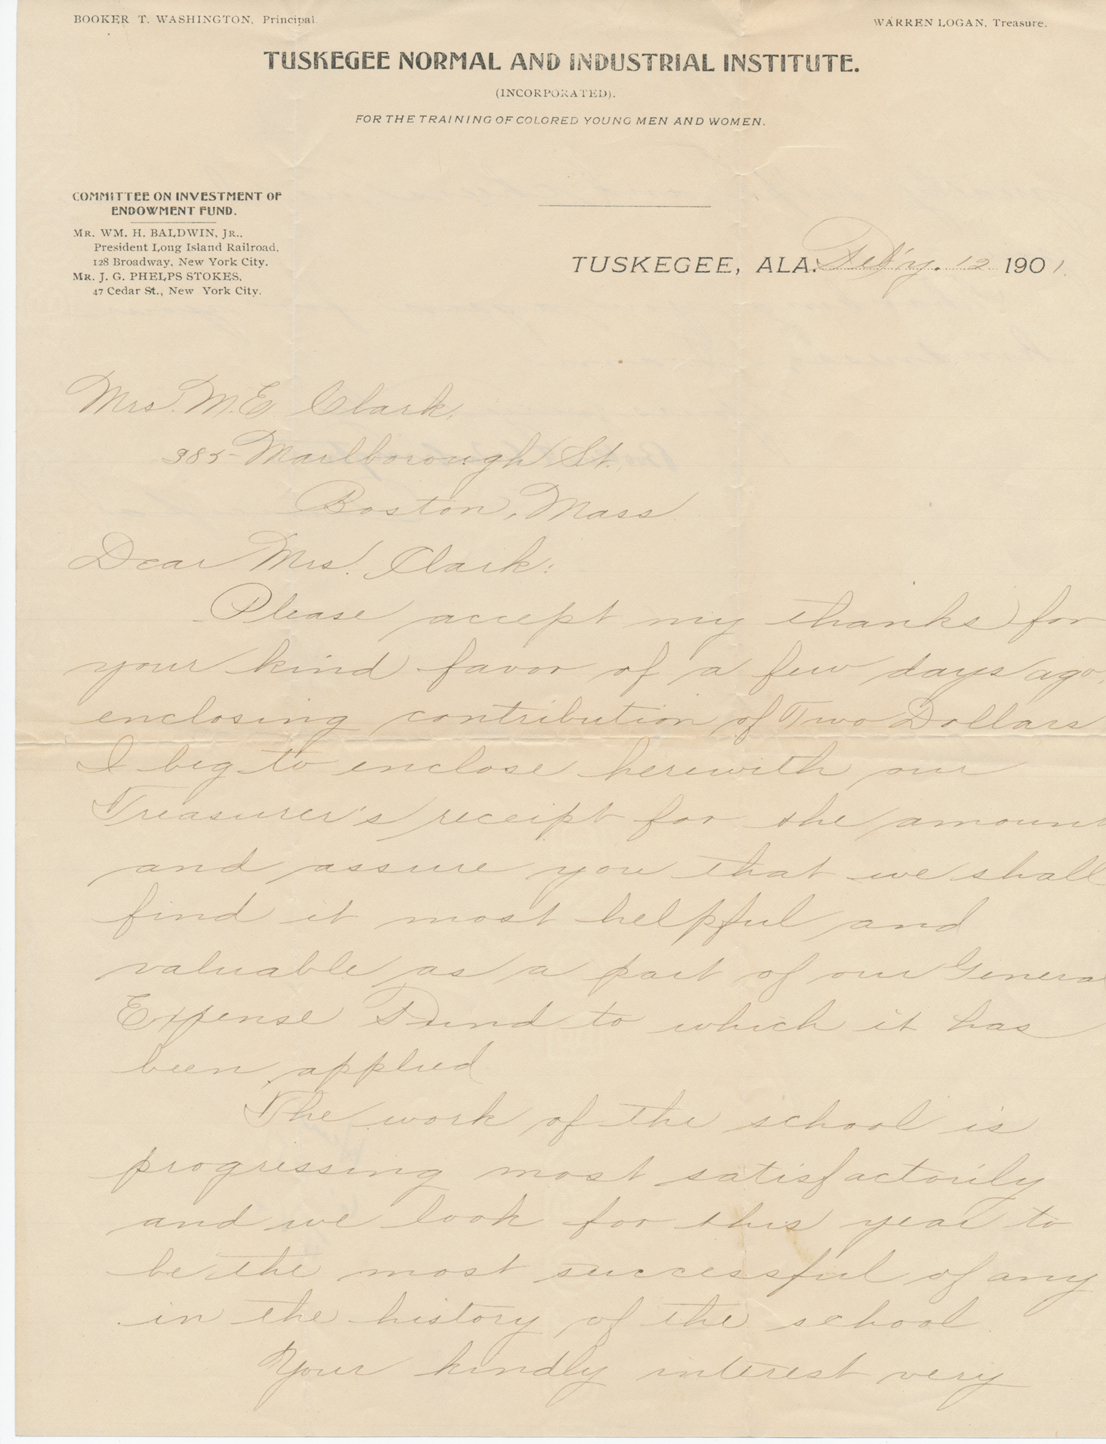 BOOKER T. WASHINGTON, Principal.
WARREN LOGAN, Treasure.
TUSKEGEE NORMAL AND INDUSTRIAL INSTITUTE.
(INCORPORATED).
FOR THE TRAINING OF COLORED YOUNG MEN AND WOMEN.
COMMITTEE ON INVESTMENT OF
ENDOWMENT FUND.
MR. WM. H. BALDWIN, JR.,
President Long Island Railroad,
128 Broadway, New York City.
MR. J. G. PHELPS STOKES,
47 Cedar St., New York City.
TUSKEGEE, ALA. Feb'y. 12 1901.
Mrs. M. E. Clark,
385 Marlborough St.
Boston, Mass.
Dear Mrs. Clark:
Please accept my thanks for
your kind favor of a few days ago,
enclosing contribution of Two Dollars
I beg to enclose herewith our
Treasurer's receipt for the amount
and assure you that we shall
find it most helpful and
valuable as a part of our General
Expense Fund to which it has
been applied
The work of the school is
progressing most satisfactorily
and we look for this year to
be the most successful of any
in the history of the school
Your kindly interest very